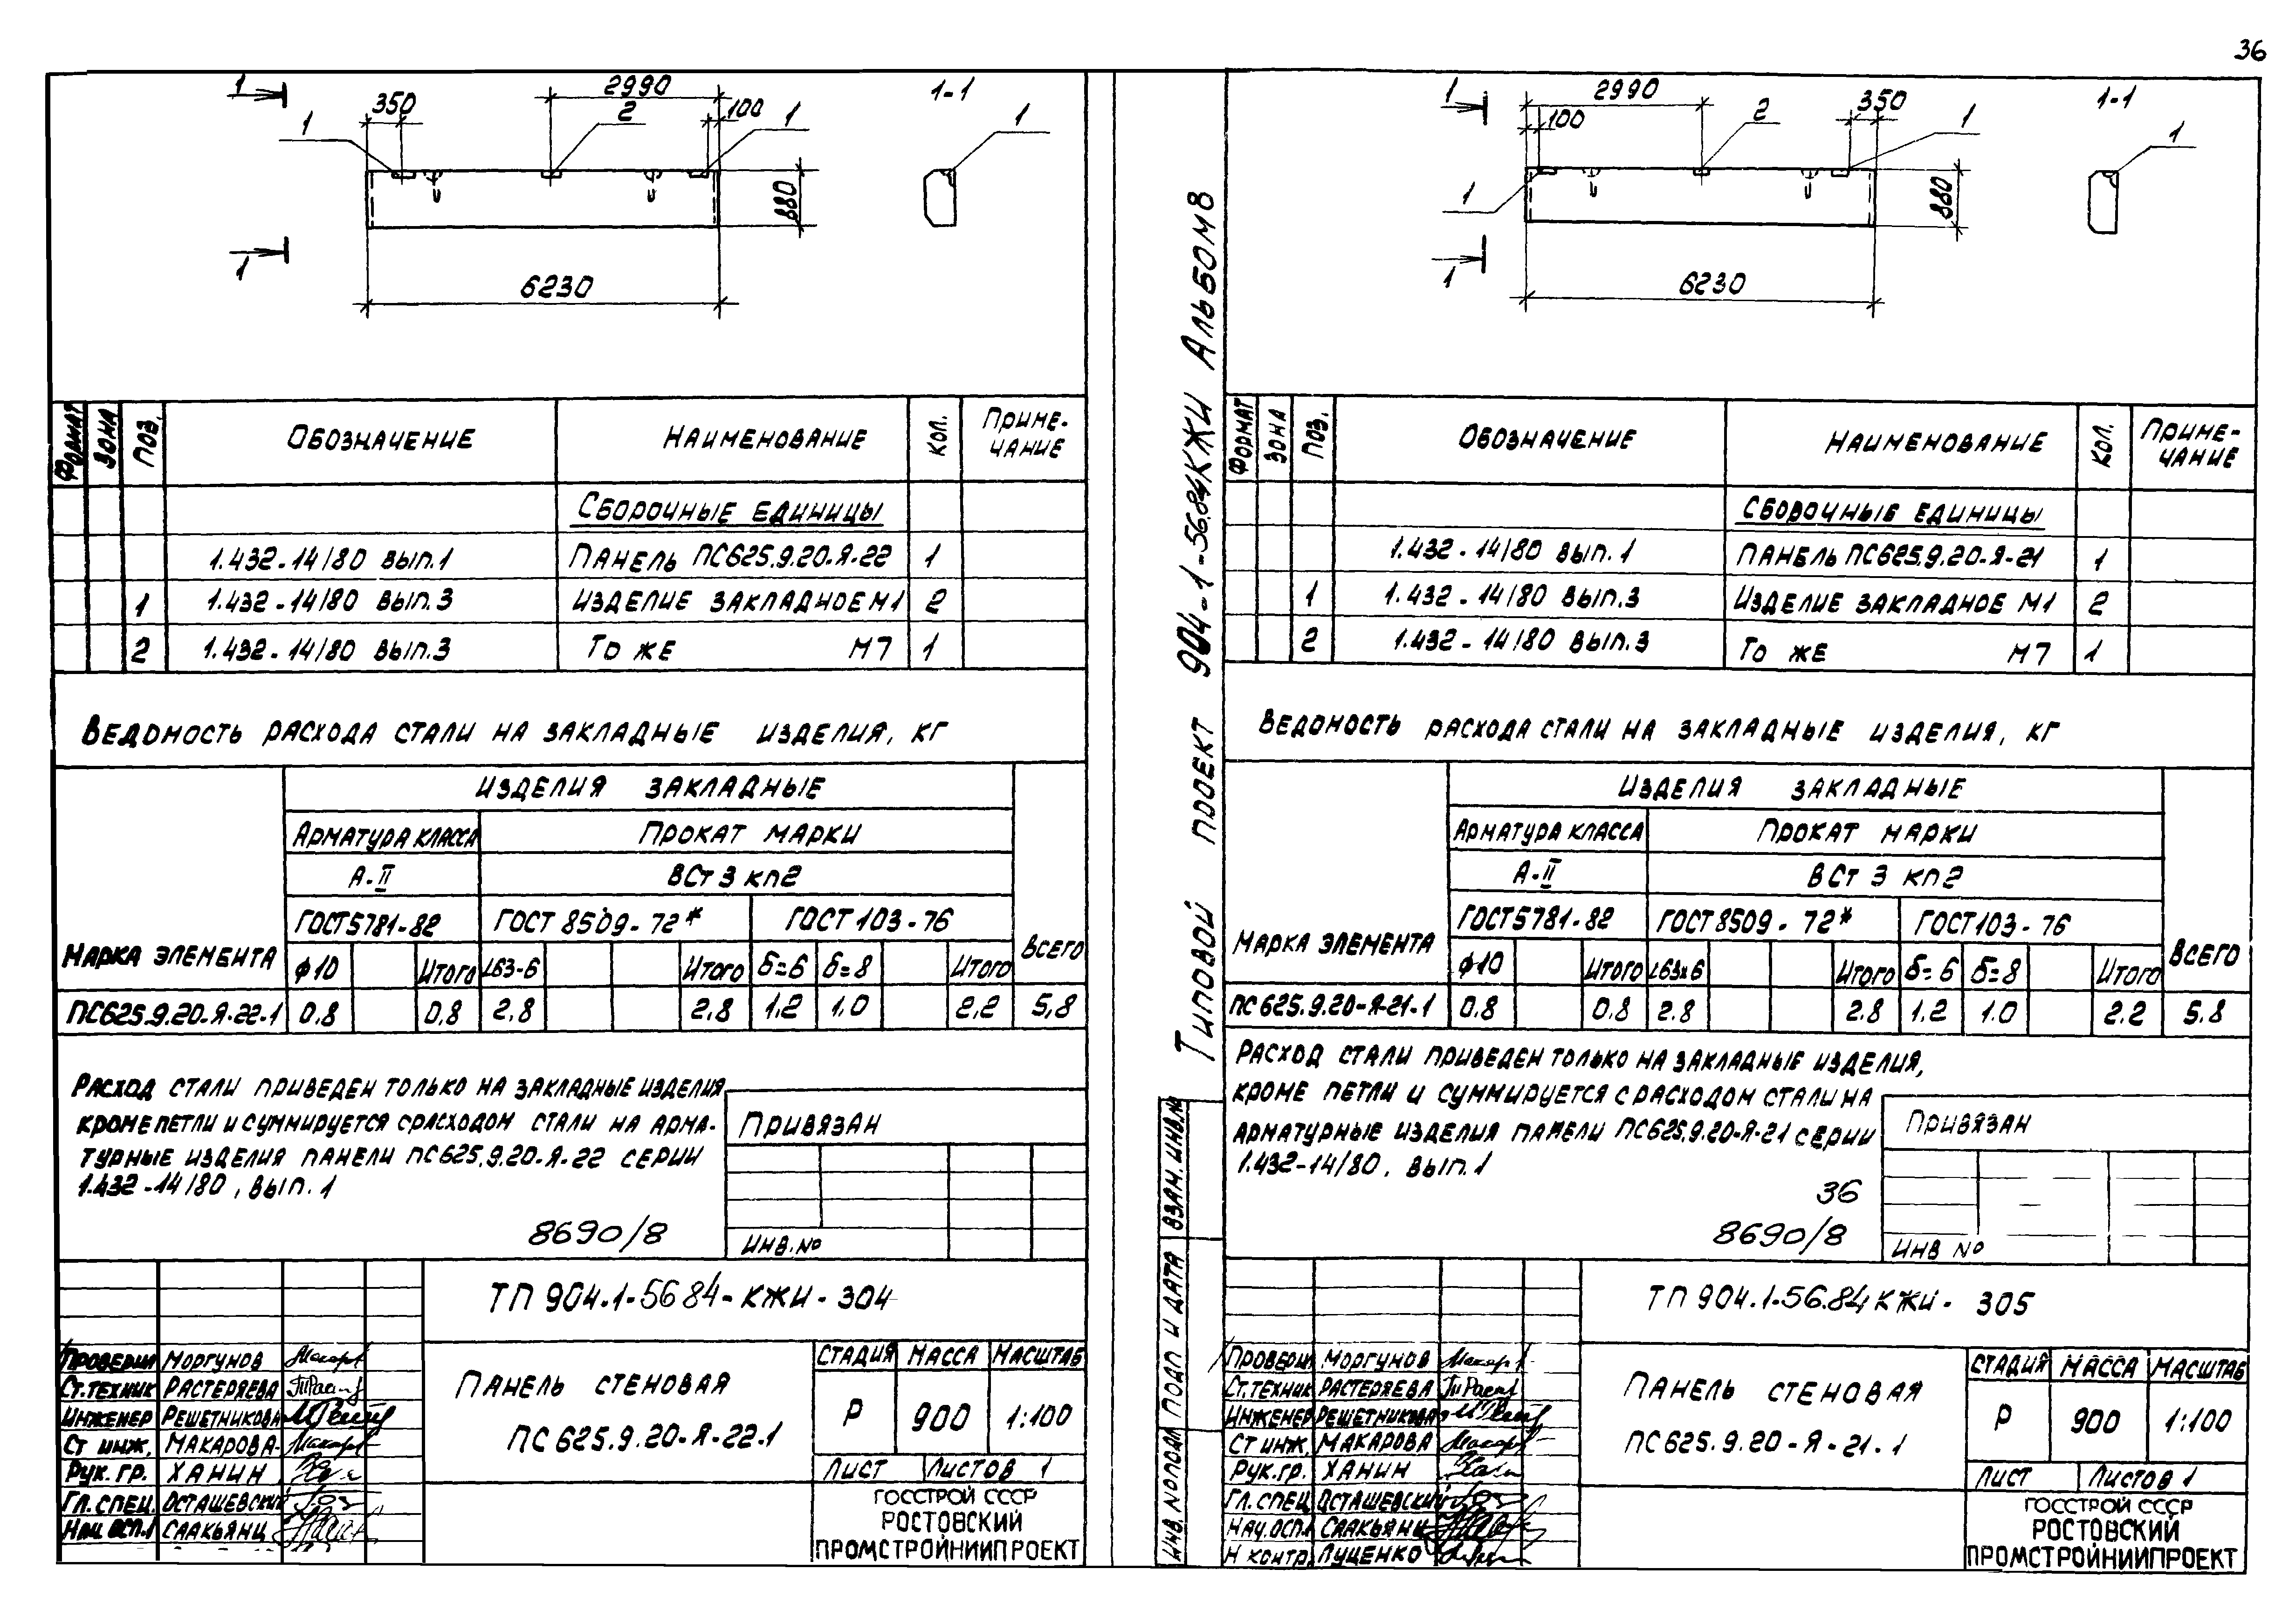 36
1
350
2990
2
100
1
1
880
6230
1
1-1
1
ФОРМАТ ЗОНА ПОЗ. ОБОЗНАЧЕНИЕ НАИМЕНОВАНИЕ КОЛ. ПРИМЕ-
ЧАНИЕ
СБОРОЧНЫЕ ЕДИНИЦЫ
1.432-14/80 ВЫП.1 ПАНЕЛЬ ПС625.9.20-Я-22 1
1 1.432-14/80 ВЫП.3 ИЗДЕЛИЕ ЗАКЛАДНОЕ М1 2
2 1.432-14/80 ВЫП.3 ТО ЖЕ М7 1
ВЕДОМОСТЬ РАСХОДА СТАЛИ НА ЗАКЛАДНЫЕ ИЗДЕЛИЯ, КГ
МАРКА ЭЛЕМЕНТА ИЗДЕЛИЯ ЗАКЛАДНЫЕ ВСЕГО
АРМАТУРА КЛАССА ПРОКАТ МАРКИ
А-II ВСт 3 кп2
ГОСТ 5781-82 ГОСТ 8509-72* ГОСТ 103-76
ф10 ИТОГО L63-6 ИТОГО δ=6 δ=8 ИТОГО
ПС625.9.20-Я-22-1 0.8 0.8 2.8 2.8 1.2 1.0 2.2 5,8
РАСХОД СТАЛИ ПРИВЕДЕН ТОЛЬКО НА ЗАКЛАДНЫЕ ИЗДЕЛИЯ
КРОМЕ ПЕТЛИ И СУММИРУЕТСЯ С РАСХОДОМ СТАЛИ НА АРМА-
ТУРНЫЕ ИЗДЕЛИЯ ПАНЕЛИ ПС625.9.20-Я-22 СЕРИИ
1.432-14/80, ВЫП. 1
8690/8
ПРИВЯЗАН
ИНВ.№
ТП 904.1-56 84-КЖИ-304
ПРОВЕРИЛ МОРГУНОВ
СТ.ТЕХНИК РАСТЕРЯЕВА
ИНЖЕНЕР РЕШЕТНИКОВА
СТ ИНЖ. МАКАРОВА
РУК. ГР. ХАНИН
ГЛ. СПЕЦ. ОСТАШЕВСКИЙ
НАЧ ОСП.1 СААКЬЯНЦ
ПАНЕЛЬ СТЕНОВАЯ
ПС 625.9.20-Я-22.1
СТАДИЯ МАССА МАСШТАБ
Р 900 1:100
ЛИСТ ЛИСТОВ 1
ГОССТРОЙ СССР
РОСТОВСКИЙ
ПРОМСТРОЙНИИПРОЕКТ
ТИПОВОЙ ПРОЕКТ 904-1-56.84КЖИ АЛЬБОМ 8
ИНВ. № ПОДЛ ПОДП И ДАТА ВЗАМ. ИНВ.№
1
2990
100
2
350
1
1
880
6230
1
1-1
1
ФОРМАТ ЗОНА ПОЗ. ОБОЗНАЧЕНИЕ НАИМЕНОВАНИЕ КОЛ. ПРИМЕ-
ЧАНИЕ
СБОРОЧНЫЕ ЕДИНИЦЫ
1.432-14/80 ВЫП.1 ПАНЕЛЬ ПС625.9.20-Я-21 1
1 1.432-14/80 ВЫП.3 ИЗДЕЛИЕ ЗАКЛАДНОЕ М1 2
2 1.432-14/80 ВЫП.3 ТО ЖЕ М7 1
ВЕДОМОСТЬ РАСХОДА СТАЛИ НА ЗАКЛАДНЫЕ ИЗДЕЛИЯ, КГ
МАРКА ЭЛЕМЕНТА ИЗДЕЛИЯ ЗАКЛАДНЫЕ ВСЕГО
АРМАТУРА КЛАССА ПРОКАТ МАРКИ
А-II ВСт 3 кп2
ГОСТ 5781-82 ГОСТ 8509-72* ГОСТ 103-76
ф10 ИТОГО L63х6 ИТОГО δ=6 δ=8 ИТОГО
ПС 625.9.20-Я-21-1 0.8 0.8 2.8 2.8 1.2 1.0 2.2 5.8
РАСХОД СТАЛИ ПРИВЕДЕН ТОЛЬКО НА ЗАКЛАДНЫЕ ИЗДЕЛИЯ,
КРОМЕ ПЕТЛИ И СУММИРУЕТСЯ С РАСХОДОМ СТАЛИ НА
АРМАТУРНЫЕ ИЗДЕЛИЯ ПАНЕЛИ ПС625.9.20-Я-21 СЕРИИ
1.432-14/80, ВЫП.1
36
8690/8
ПРИВЯЗАН
ИНВ №
ТП 904.1-56.84 КЖИ- 305
ПРОВЕРИЛ МОРГУНОВ
СТ.ТЕХНИК РАСТЕРЯЕВА
ИНЖЕНЕР РЕШЕТНИКОВА
СТ ИНЖ. МАКАРОВА
РУК.ГР. ХАНИН
ГЛ. СПЕЦ ОСТАШЕВСКИЙ
НАЧ.ОСП.1 СААКЬЯНЦ
Н КОНТР. ЛУЦЕНКО
ПАНЕЛЬ СТЕНОВАЯ
ПС 625.9.20-Я-21.1
СТАДИЯ МАССА МАСШТАБ
Р 900 1:100
ЛИСТ ЛИСТОВ 1
ГОССТРОЙ СССР
РОСТОВСКИЙ
ПРОМСТРОЙНИИПРОЕКТ